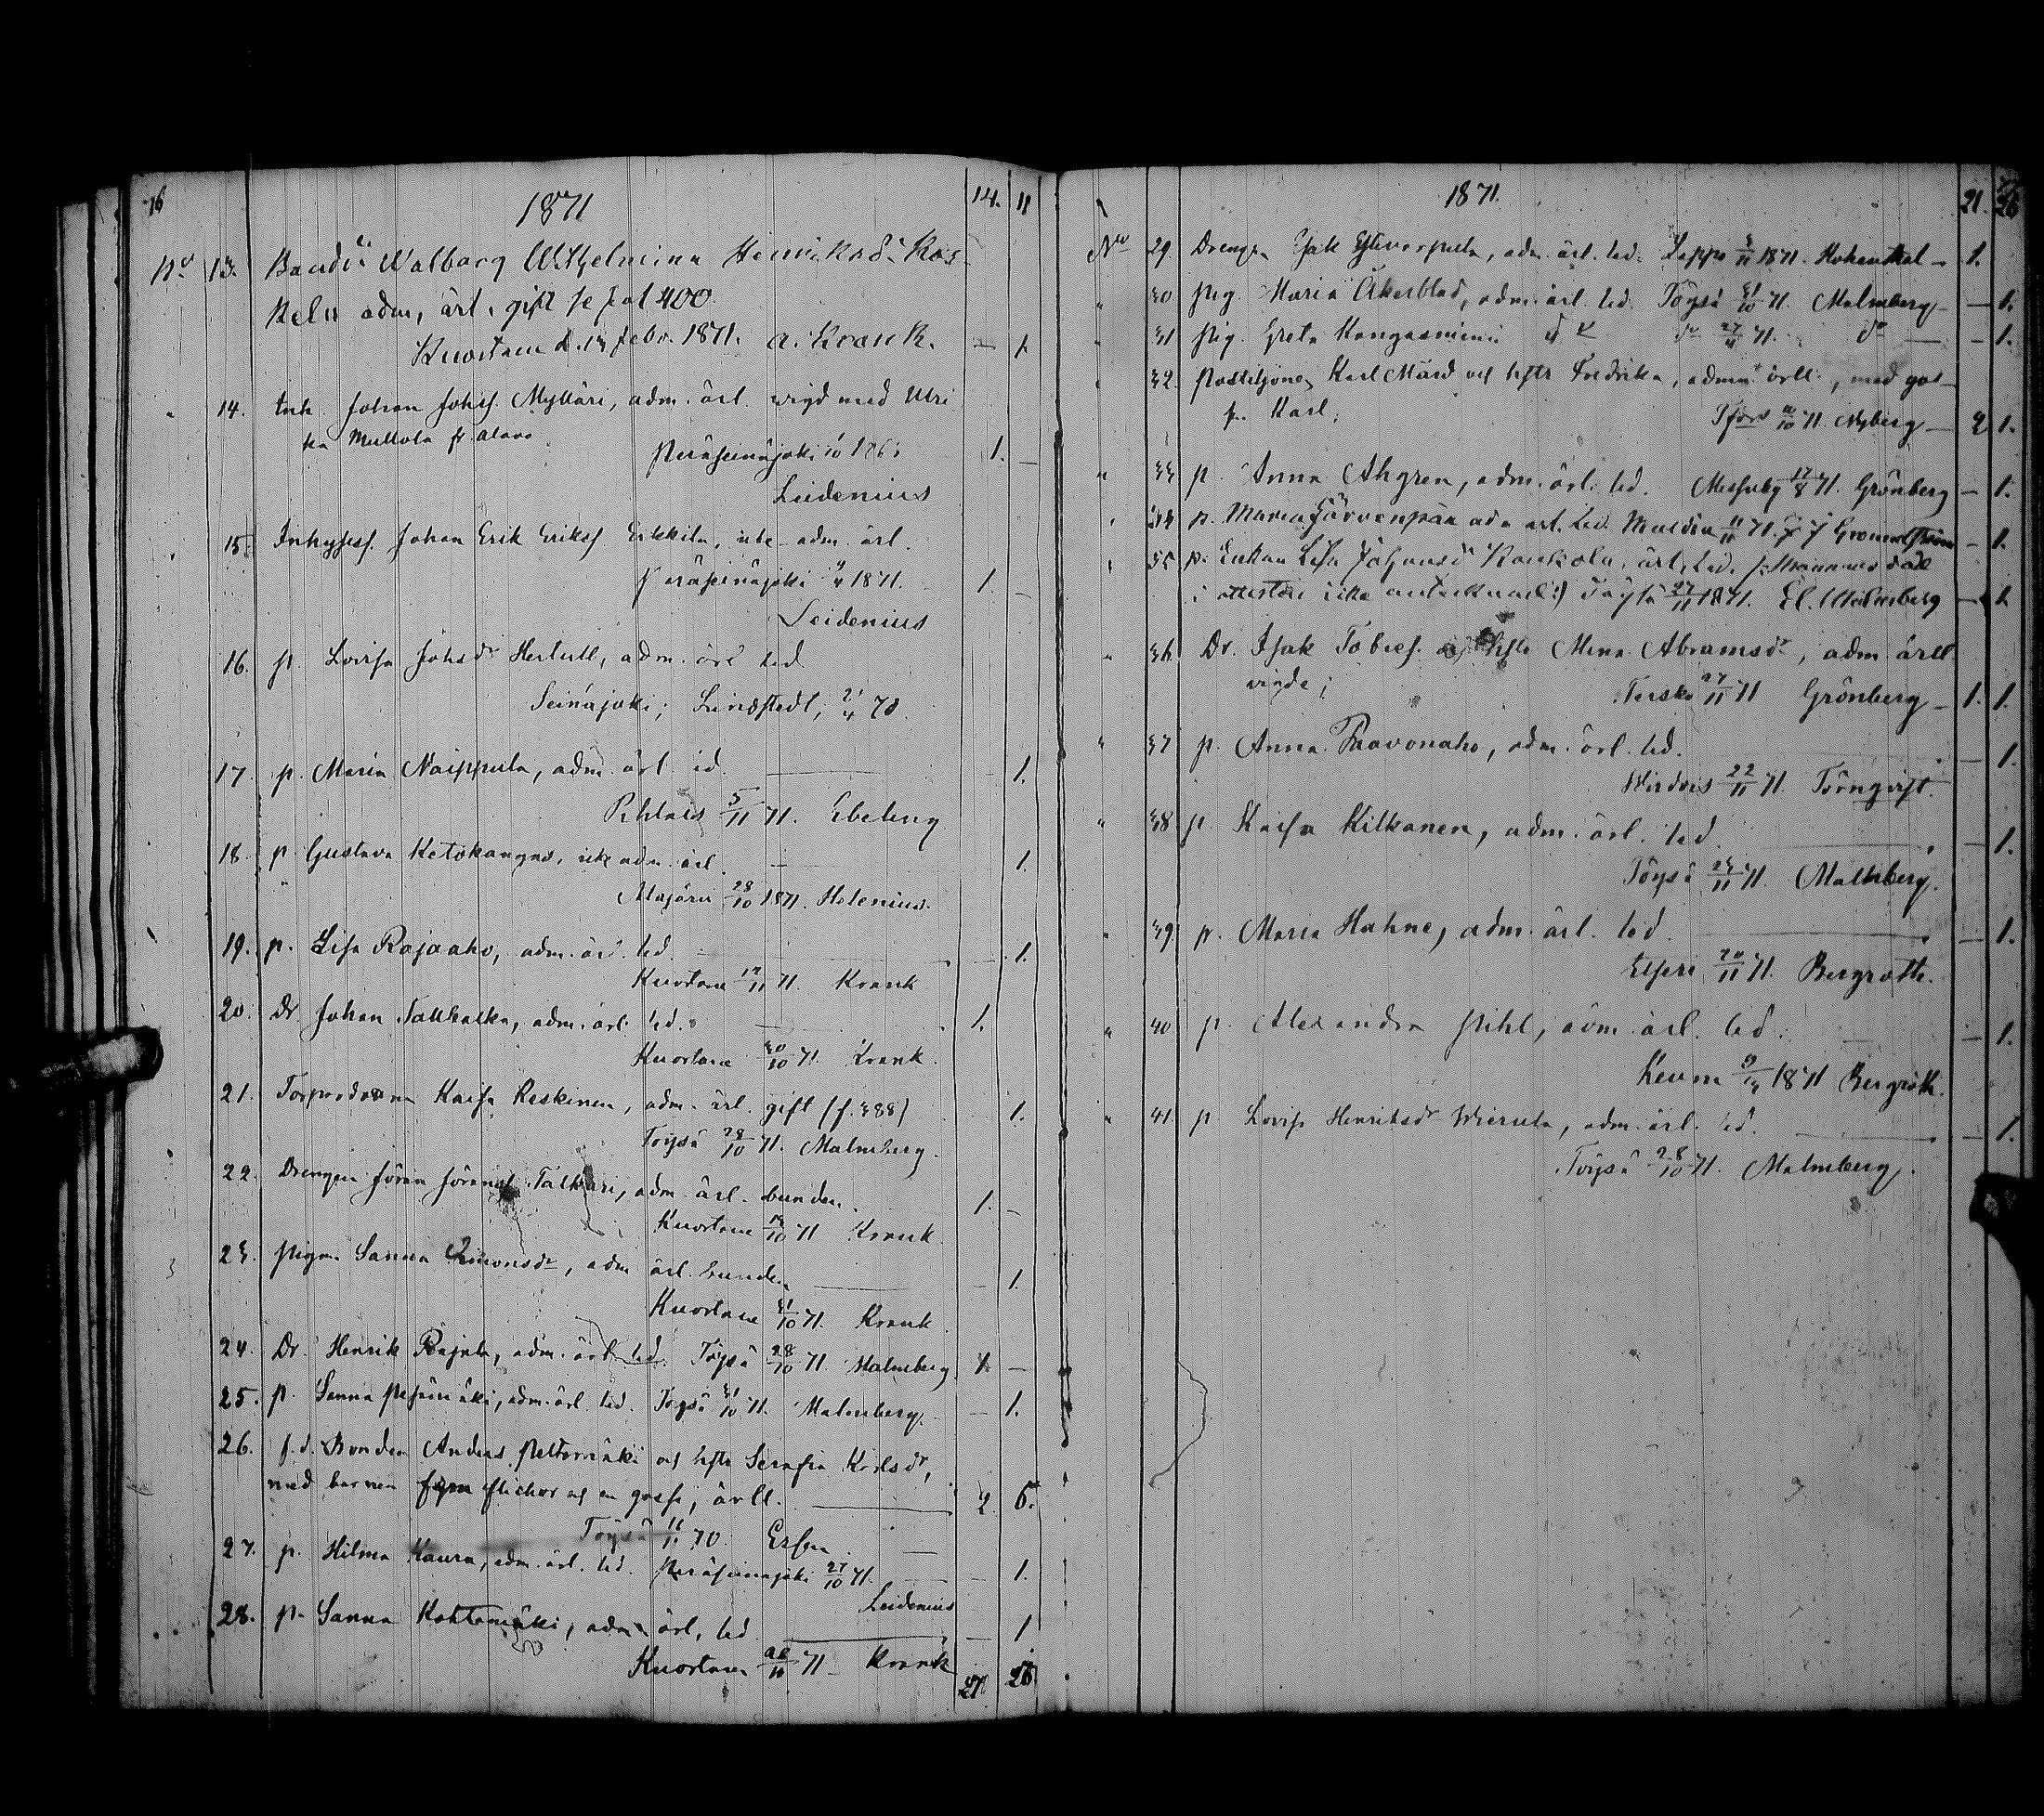 76 1871 14. 11
No 13. Bondd:r Walborg Wilhelmina Henriksd:r Kos-
kela adm, ärl. gift se fol 400.
Kuortane d. 13 febr. 1871. A. Krank. — 1.
14. Inh. Johan Johss. Mylläri, adm. ärl. wigd med Ulri
ka Mullola fr. Alavo
Peräseinäjoki 186 1. —
Leidenius
15. Inhyses. Johan Erik Erikss. Erkkila, icke adm. ärl.
Peräseinäjoki 1871. 1. —
Leidenius
16. p. Lovisa Johsdr adm. ärl led.
Seinäjoki; Lindstedt; 21/4 70.
17. p. Maria Naippula, adm. ärl. led. 1.
Pihlais 5/11 71. Ebeling
18. p. Gustava Ketokangas, icke adm. ärl 1.
28/10 1871. Helenius.
19. p. Lisa Rajaaho, adm. ärl. led. 1.
Kuortane 71. Krank
20. Dr Johan adm. ärl. led. 1.
Kuortane 30/10 71. Krank.
21. Kaisa Keskinen, adm. ärl. gift (f. 388) 1.
Töysä 28/10 71. Malmberg.
22. Drengen Jöran Jöranss. Talkkari, adm. ärl. bunden. 1. —
Kuortane 71 Krank.
23. Pigan Sanna Simonsdr, adm ärl. bunden — 1.
Kuortane 31/10 71. Krank.
24. Dr. Henrik Rajala, adm. ärl. led. Töysä 28/10 71. Malmberg 1. —
25. p. Sanna adm. ärl. led. Töysä 31/10 71. Malmberg. — 1.
26. f. d. Bonden Anders Peltomäki och hstr Serafia Karlsdr,
med barnen fem flickor och en gosse, ärll. 2 6.
Töysä 16/11 70.
27. p. Hilma Kaura, adm. ärl. led. Peräseinäjoki 27/10 71. — 1.
Leidenius
28. p. Sanna Kohtamäki, adm ärl. led — 1
Kuortane 71 Krank
21 26
1871. 21. 26
No 29. Drengen Isak adm. ärl. led. Lappo 1871. Hohenthal — 1.
" 30 pig. Maria Åkerblad, adm. ärl. led. Töysä 31/10 71. Malmberg — 1.
" 31 pig. Greta Kangasniemi do do 71. do — 1.
" 32. Postiljonen Karl Mård och hstr Fredrika, adm. ärll., med gos-
sen Karl; Tfors 71. Nyberg — 2 1.
" 33 p. Anna Ahgren, adm. ärl. led. Messuby 17/8 71. Grönberg — 1.
" 34 p. Maria Järvenpää adm ärl. led. Multia 71. — 1.
" 35 p. Enkan Lisa Johansdr Koukola, ärl, led.
i attesten icke antecknad:) Töysä 27/11 1871. Malmberg — 1.
" 36 Dr. Isak Tobiess. och hstr Mina Abramsdr, adm ärll
vigde; Terska 27/11 71 Grönberg — 1. 1.
" 37 p. Anna Paavonaho, adm. ärl. led. — 1.
Wirdois 22/11 71. Törnqvist.
" 38 p. Kaisa Kilkanen, adm. ärl. led — 1.
Töysä 71. Malmberg.
" 39 p. Maria Hahne, adm. ärl. led. — 1.
Etseri 20/11 71. Bergroth.
" 40 p. Alexandra Pihl, adm. ärl. led. — 1.
Keuru 1871 Bergroth.
" 41. p. Lovisa Henriksdr Wierula, adm. ärl. led. — 1.
Töysä 28/10 71. Malmberg.